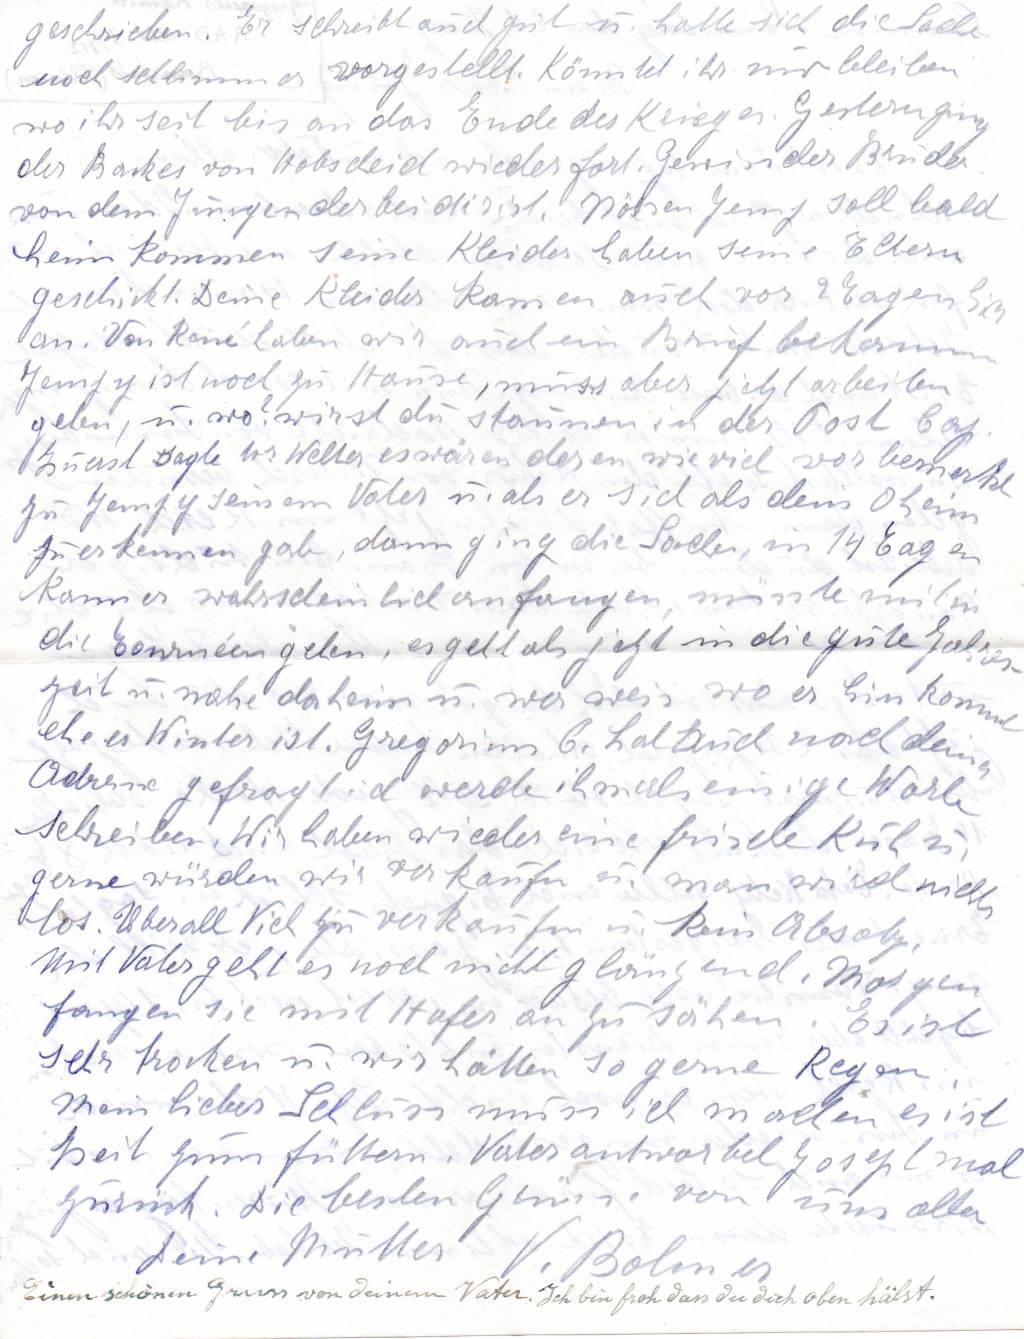 geschrieben. Er schreibt auch gut u. hatte sich die Sache
noch schlimmer vorgestellt. Könntet ihr nur bleiben
wo ihr seit bis an das Ende des Krieges. Gestern ging
der Backes von Hobscheid wieder fort. Gewin der Bruder
von dem Jungen der bei dir ist. Jempy soll bald
heim kommen seine Kleider haben seine Eltern
geschickt. Deine Kleider kamen auch vor 2 Tagen hier
an. Von René haben wir auch ein Brief bekommen
Jempy ist noch zu Hause, muss aber jetzt arbeiten
gehen, u. wo? wirst du staunen in der Post Cap.
Zuerst sagte Hr Welter es wären deren wieviel vor bemerkt
zu Jempy seinem Vater u. als er sich als dem Oheim
zu erkennen gab, dann ging die Sache, in 14 Tagen
kann er wahrscheinlich anfangen, müsste mit in
die Tournéen gehen, es geht als jetzt in die gute Jahres-
zeit u. nahe daheim u. wer weis wo er hin kommt
ehe es Winter ist. Gregorius C. hat auch nach deiner
Adresse gefragt ich werde ihm als einige Worte
schreiben. Wir haben wieder eine frische Kuh u.
gerne würden wir verkaufen u. man wird nichts
los. Überall Vieh zu verkaufen u. kein Absatz.
Mit Vater geht es noch nicht glänzend. Morgen
fangen sie mit Hafer an zu sähen. Es ist
sehr trocken u. wir hätten so gerne Regen.
Mein lieber Schluss muss ich machen es ist
Zeit zum füttern. Vater antwortet Joseph mal
zurück. Die besten Grüsse von uns allen
Deine Mutter V. Bohmer
Einen schönen Gruss von deinem Vater. Ich bin froh dass du dich oben hälst.